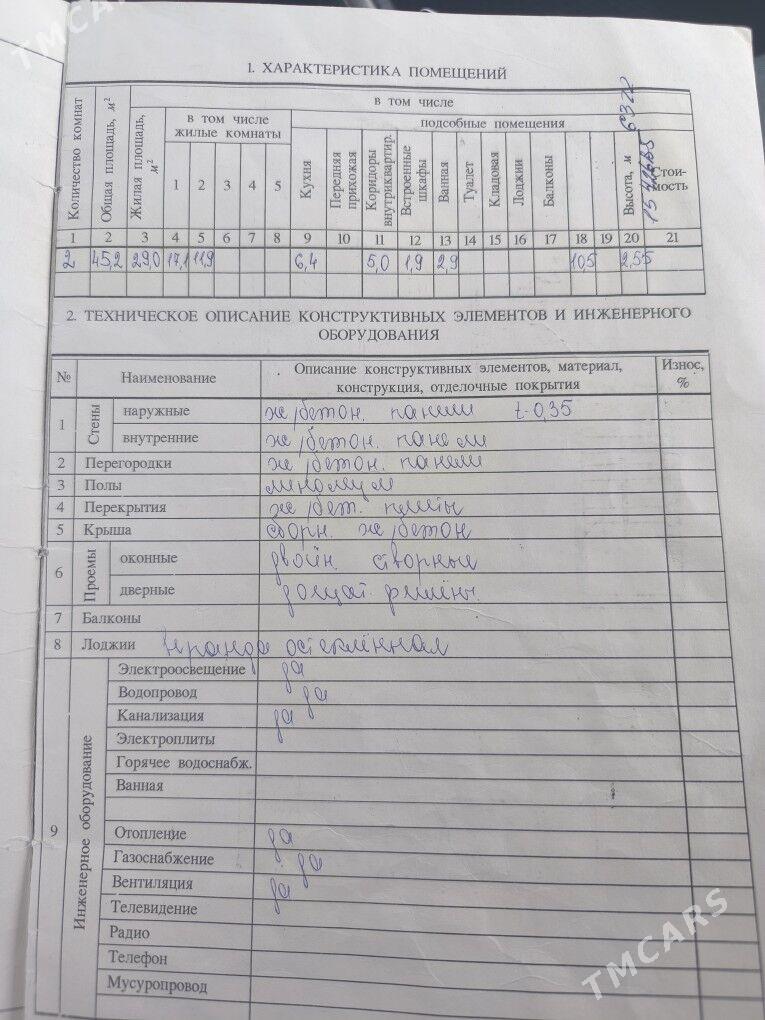 TMCARS
1. ХАРАКТЕРИСТИКА ПОМЕЩЕНИЙ
Количество комнат
Общая площадь, м²
Жилая площадь, м²
в том числе
в том числе жилые комнаты
подсобные помещения
1 2 3 4 5
Кухня
Передняя прихожая
Коридоры внутриквартир.
Встроенные шкафы
Ванная
Туалет
Кладовая
Лоджии
Балконы
Высота, м
Стоимость
1 2 3 4 5 6 7 8 9 10 11 12 13 14 15 16 17 18 19 20 21
2 45,2 29,0 17,1 11,9 6,4 5,0 1,9 2,9 10,5 2,55
2. ТЕХНИЧЕСКОЕ ОПИСАНИЕ КОНСТРУКТИВНЫХ ЭЛЕМЕНТОВ И ИНЖЕНЕРНОГО
ОБОРУДОВАНИЯ
№ Наименование Описание конструктивных элементов, материал, конструкция, отделочные покрытия Износ, %
1 Стены наружные ж/бетон. панели t-0,35
внутренние ж/бетон. панели
2 Перегородки ж/бетон. панели
3 Полы линолеум
4 Перекрытия ж/бет. плиты
5 Крыша сборн. ж/бетон
6 Проемы оконные двойн. створные
дверные дощат. филён.
7 Балконы
8 Лоджии веранда остеклённая
9 Инженерное оборудование
Электроосвещение да
Водопровод да
Канализация да
Электроплиты
Горячее водоснабж.
Ванная
Отопление да
Газоснабжение да
Вентиляция да
Телевидение
Радио
Телефон
Мусуропровод
TMCARS